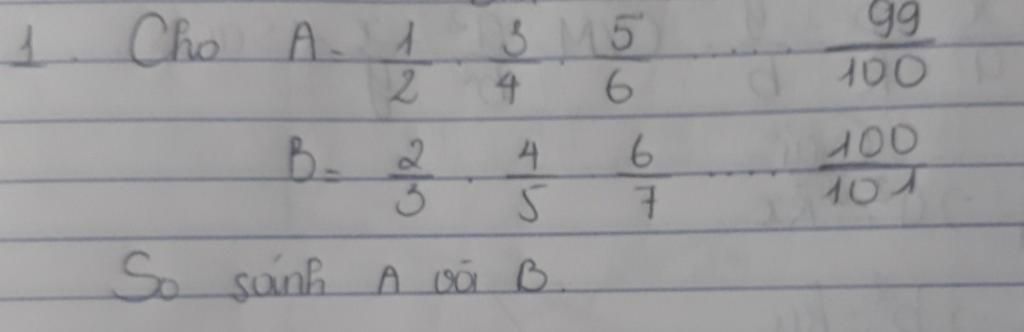 1. Cho A = 1/2 . 3/4 . 5/6 ..... 99/100
B = 2/3 . 4/5 . 6/7 ..... 100/101
So sánh A với B.